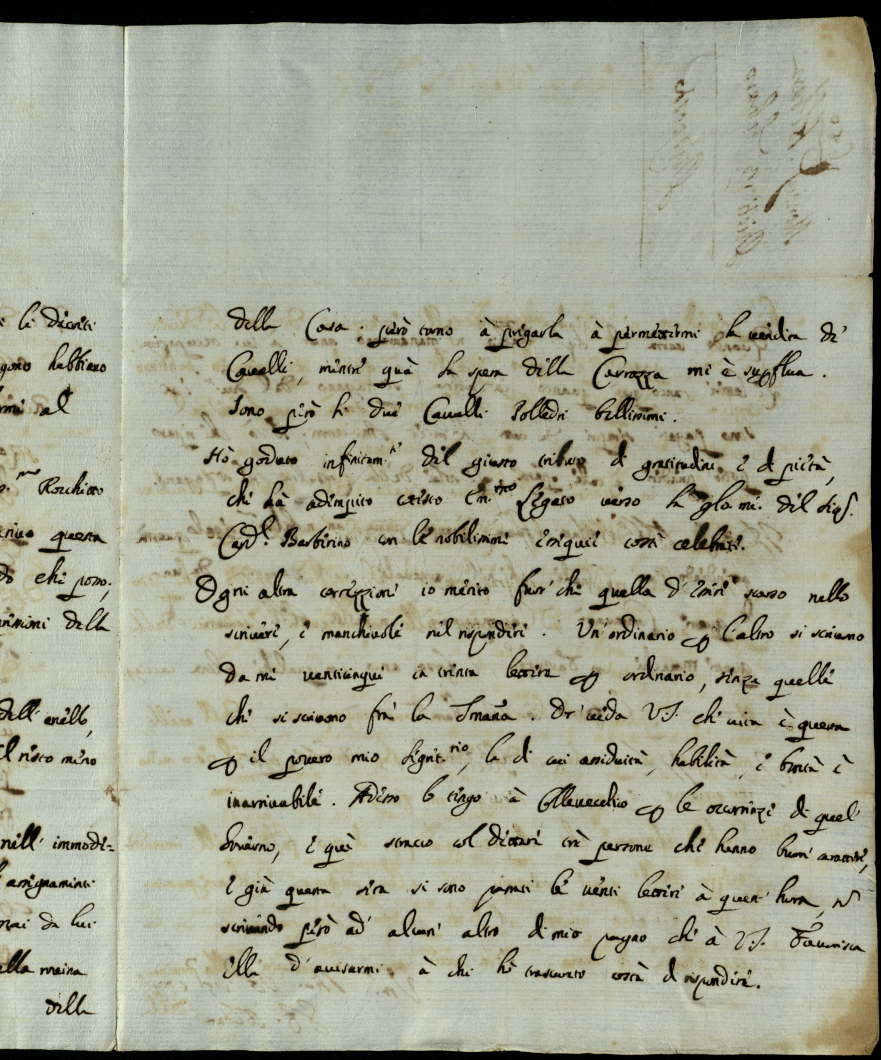 i li diversi
gono habbiano
rmi al
Rocchetto
scrivo questa
do che posso;
nissimi della
dell' anello,
il resto meno
nell' immodi=
assignamenti
mai da lui
alla roina
della
della Casa; però torno à pregarla à permettermi la vendita de'
Cavalli, mentre quà la spesa della Carrozza mi è suꝑflua.
Sono però li due Cavalli Polledri bellissimi.
Hò goduto infinitam.te del giusto tributo di gratitudine e di pietà,
che hà adempito cotesto Em.mo Legato verso la glo: me: del Sig.r
Card.l Barberino con le nobilissime essequie costà celebrate.
Ogni altra correzzione io merito fuor che quella d'essere scarso nello
scrivere, e manchevole nel rispondere. Un'ordinario ꝑ l'altro si scrivono
da me venticinque in trenta lettere ꝑ ordinario, senza quelle
che si scrivono frà la Smana. Or veda V.S. che vita è questa
ꝑ il povero mio Segret.rio, la di cui assiduità, habilità, e bontà è
inarrivabile. Adesso lo tengo à Collevecchio ꝑ le occorrenze di quel
Governo, e quà straccio col dettare trè persone che hanno buon carattere,
e già questa sera si sono passate le venti lettere à quest' hora, nè
scrivendo però ad' alcun' altro di mio pugno che à V.S. Favorisca
ella d'avisarmi à chi hò trascurato costà di rispondere.